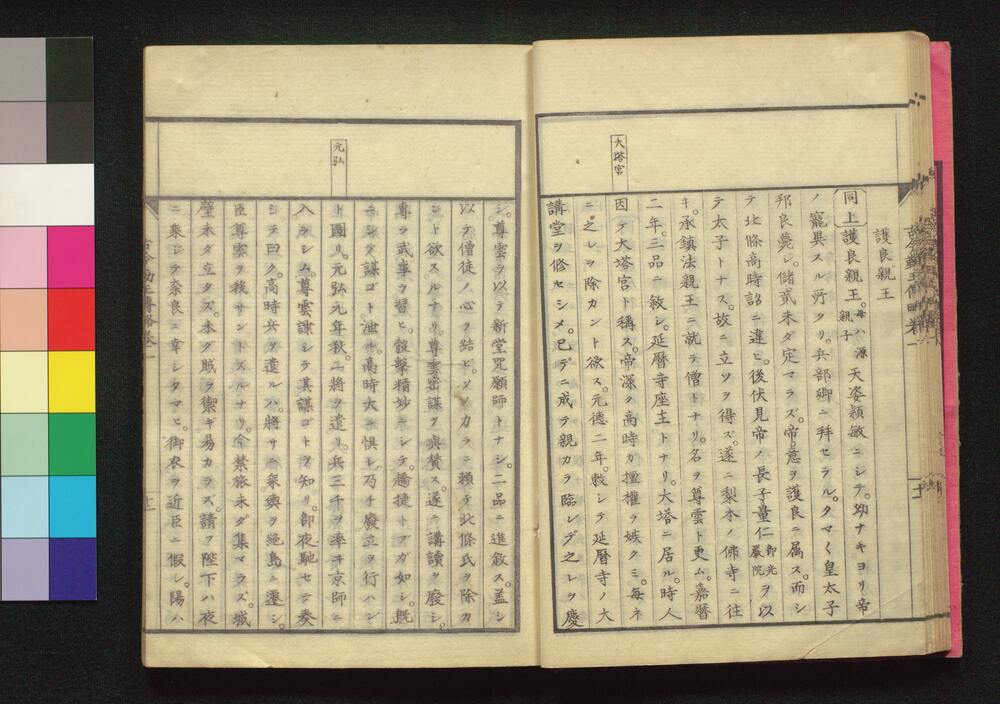 大塔宮
護良親王
同上護良親王。母ハ源親子天姿頴敏ニシテ。幼ナキヨリ帝
ノ寵異スル所タリ。兵部卿ニ拜セラル。タマ〱皇太子
邦良薨レ。儲貳未ダ定マラズ。帝意ヲ護良ニ属ス。而シ
テ北條高時詔ニ違ヒ。後伏見帝ノ長子量仁即光嚴院ヲ以
テ太子トナス。故ニ立ツヲ得ズ。遂ニ梨本ノ佛寺ニ往
キ。承鎮法親王ニ就テ僧トナリ。名ヲ尊雲ト更ム。嘉暦
二年。三品ニ敘シ。延暦寺座主トナリ。大塔ニ居ル。時人
因テ大塔宮ト稱ス。帝深ク高時カ擅權ヲ嫉クミ。毎ネ
ニ之レヲ除カント欲ス。元德二年。敕シテ延暦寺ノ大
講堂ヲ修セシメ。已デニ成ヲ親カラ臨シデ之レヲ慶
元弘
シ。尊雲ヲ以テ新堂咒願師トナシ。二品ニ進敘ス。蓋シ
以テ僧徒ノ心ヲ結ビ。ソノカラニ頼テ北條氏ヲ除カ
ント欲スルナリ。尊雲密謀ヲ與賛ス。遂ニ講讀ヲ廢シ。
專ラ武事ヲ習ヒ。毅擊精妙ニシテ。趫捷トブガ如シ。既
ニシテ謀ゴト泄ル。高時大ニ惧レ。乃チ廢立ヲ行ハン
ト圖リ。元弘元年秋。二將ヲ遣リ。兵三千ヲ率ヰ京師ニ
入ラシム。尊雲諜シテ其謀ゴトヲ知リ。即夜馳セテ奏
シテ曰ク。高時兵ヲ遣ルハ。將サニ乘輿ヲ絕島ニ遷シ。
臣尊雲ヲ殺サントスルナリ。今禁旅未ダ集マラズ。城
壁未ダ立タズ。未ダ賊ヲ禦ギ易カラズ。請フ陛下ハ夜
ニ乘シテ奈良ニ幸シタマヒ。御衣ヲ近臣ニ假シ。陽ハ